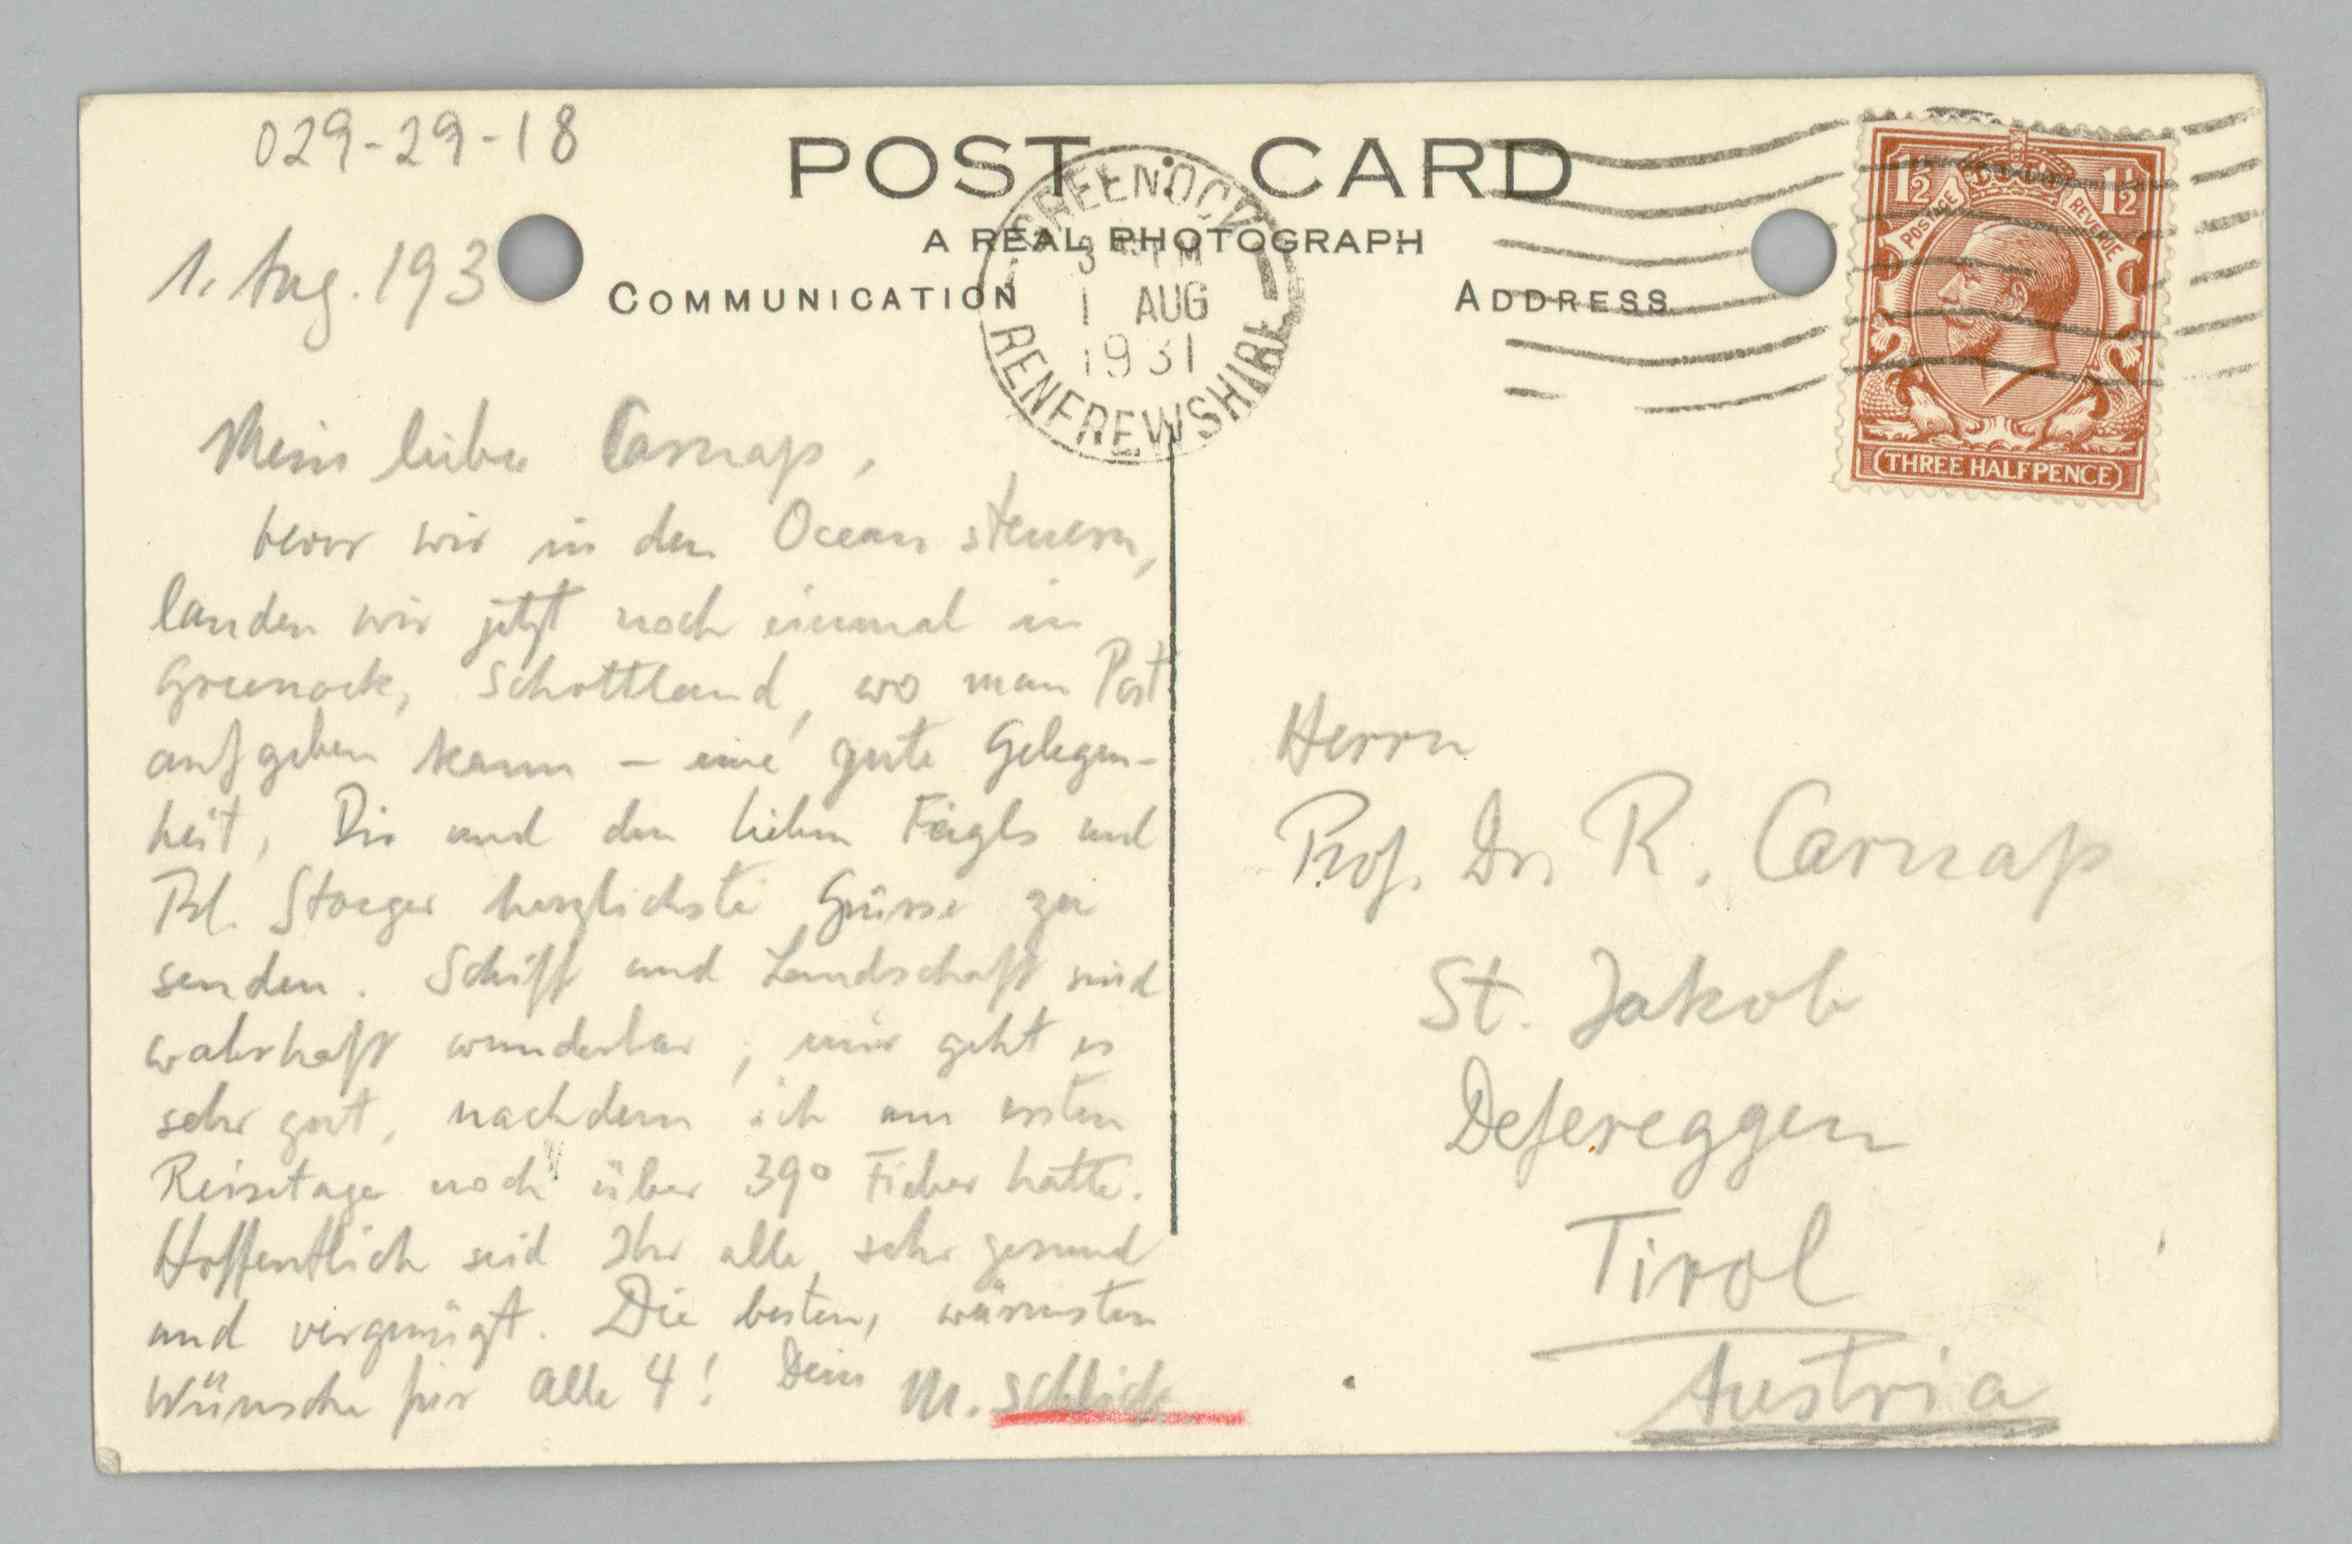 029-29-18
POST CARD
A REAL PHOTOGRAPH
COMMUNICATION
ADDRESS
GREENOCK
3 PM
1 AUG
1931
RENFREWSHIRE
1½ 1½
POSTAGE REVENUE
THREE HALFPENCE
1. Aug. 193
Mein lieber Carnap,
bevor wir in den Ocean steuern,
landen wir jetzt noch einmal in
Greenock, Schottland, wo man Post
aufgeben kann – eine gute Gelegen-
heit, Dir und den lieben Feigls und
Frl. Stoeger herzlichste Grüsse zu
senden. Schiff und Landschaft sind
wahrhaft wunderbar, mir geht es
sehr gut, nachdem ich am ersten
Reisetage noch über 39° Fieber hatte.
Hoffentlich seid Ihr alle sehr gesund
und vergnügt. Die besten, wärmsten
Wünsche für alle 4! Dein M. Schlick
Herrn
Prof. Dr. R. Carnap
St. Jakob
Defereggen
Tirol
Austria